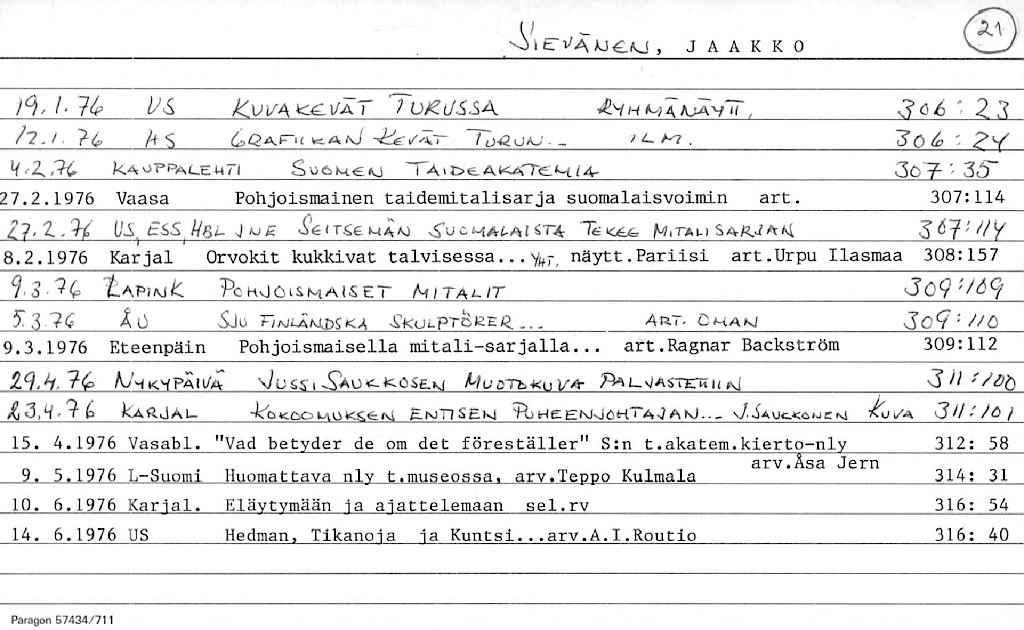 SIEVÄNEN, JAAKKO 21
19.1.76 US KUVAKEVÄT TURUSSA RYHMÄNÄYTT. 306:23
12.1.76 HS GRAFIIKAN KEVÄT TURUN... ILM. 306:24
4.2.76 KAUPPALEHTI SUOMEN TAIDEAKATEMIA 307:35
27.2.1976 Vaasa Pohjoismainen taidemitalisarja suomalaisvoimin art. 307:114
27.2.76 US, ESS, HBL JNE SEITSEMÄN SUOMALAISTA TEKEE MITALISARJAN 307:114
8.2.1976 Karjal Orvokit kukkivat talvisessa... YHT. näytt.Pariisi art.Urpu Ilasmaa 308:157
9.3.76 LAPINK POHJOISMAISET MITALIT 309:109
5.3.76 ÅU SJU FINLÄNDSKA SKULPTÖRER... ART. ÖMAN 309:110
9.3.1976 Eteenpäin Pohjoismaisella mitali-sarjalla... art.Ragnar Backström 309:112
29.4.76 NYKYPÄIVÄ JUSSI SAUKKOSEN MUOTOKUVA PALJASTETTIIN 311:100
23.4.76 KARJAL KOKOOMUKSEN ENTISEN PUHEENJOHTAJAN... J.SAUKKONEN KUVA 311:101
15. 4.1976 Vasabl. "Vad betyder de om det föreställer" S:n t.akatem.kierto-nly 312: 58
arv.Åsa Jern
9. 5.1976 L-Suomi Huomattava nly t.museossa, arv.Teppo Kulmala 314: 31
10. 6.1976 Karjal. Eläytymään ja ajattelemaan sel.rv 316: 54
14. 6.1976 US Hedman, Tikanoja ja Kuntsi...arv.A.I.Routio 316: 40
Paragon 57434/711